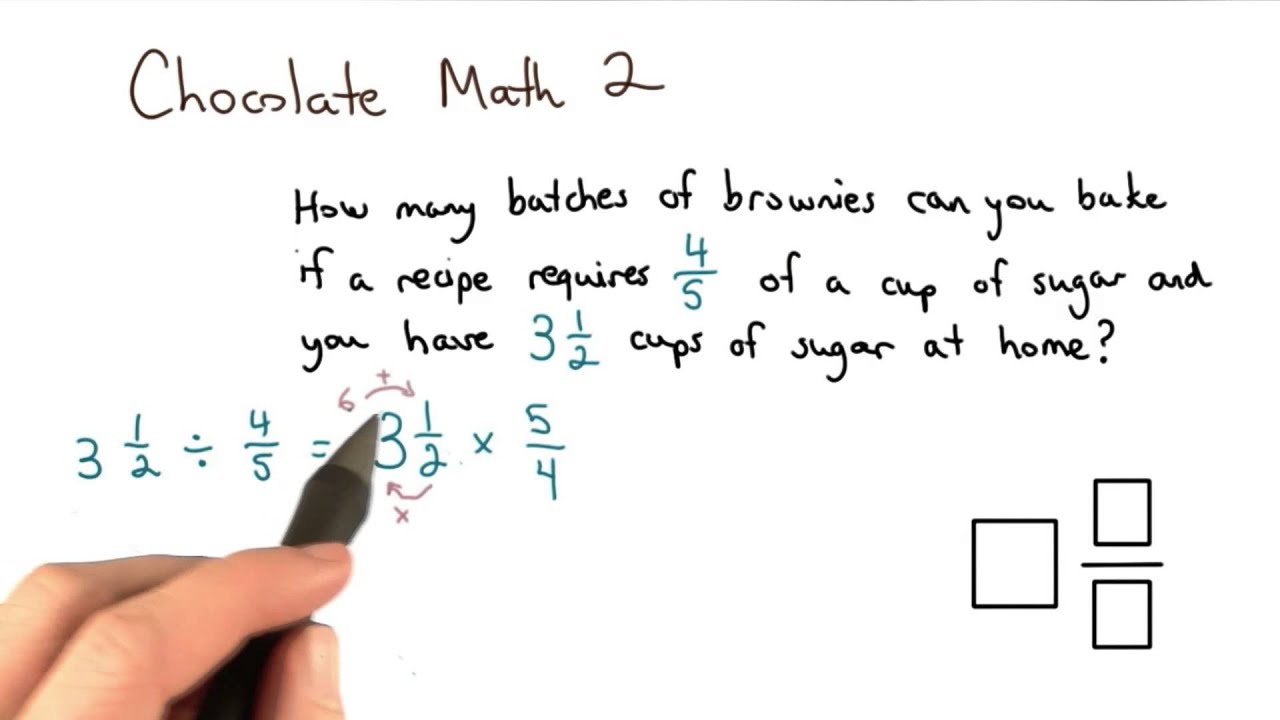 Chocolate Math 2
How many batches of brownies can you bake
if a recipe requires 4/5 of a cup of sugar and
you have 3 1/2 cups of sugar at home?
6 +
3 1/2 ÷ 4/5 = 3 1/2 × 5/4
×